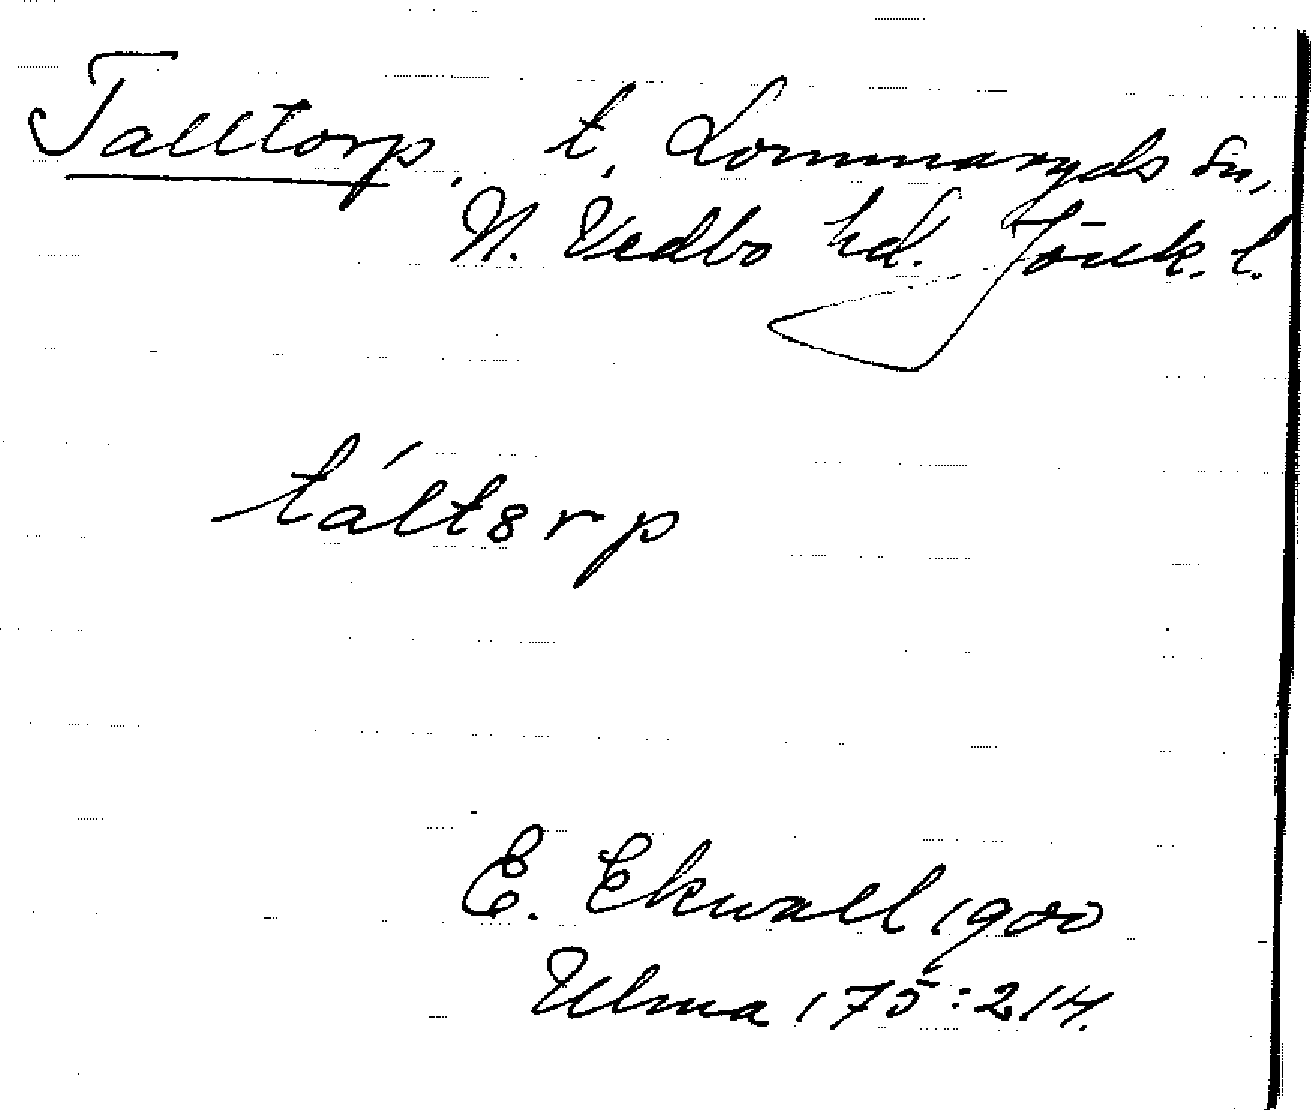 Talltorp, t. Lommaryds sn,
N. Vedbo hd. Jönk. l.
táltorp
E. Ekwall 1900
Ulma 175:214.